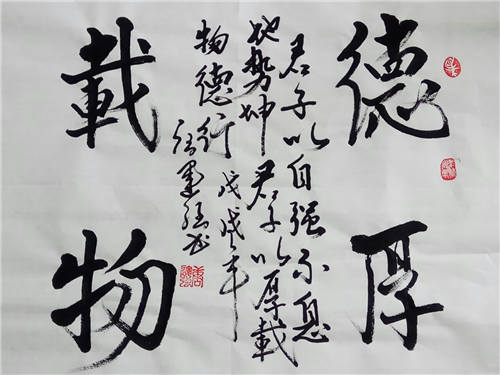 德厚
君子以自强不息
地勢坤君子以厚載
物德行戊戌年
載物